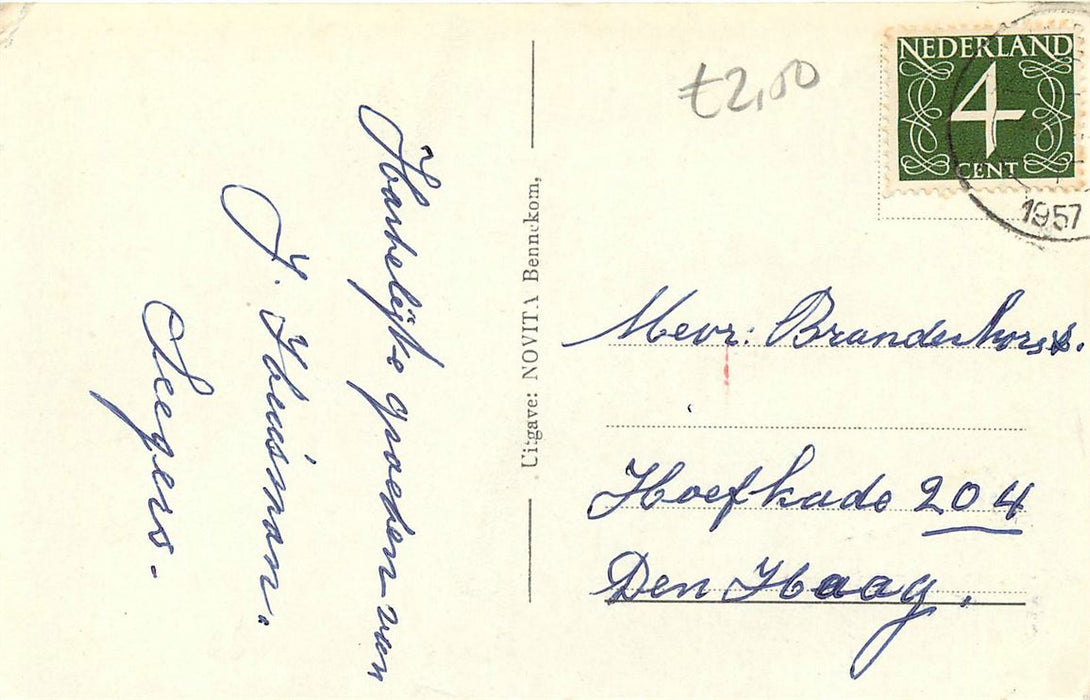 Hartelijke groeten van
J. Huisman.
Seegers.
Uitgave: NOVITA Bennekom,
€2,00
NEDERLAND
4
CENT
1957
Mevr: Branderhorst.
Hoefkade 204
Den Haag.